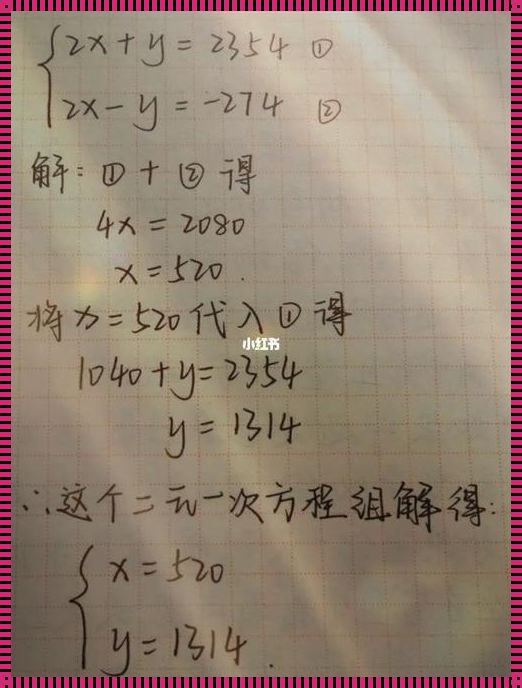 2x+y=2354 ①
2x-y=-274 ②
解:①+②得
4x=2080
x=520.
将x=520代入①得
小红书
1040+y=2354
y=1314
∴这个二元一次方程组解得:
x=520
y=1314.